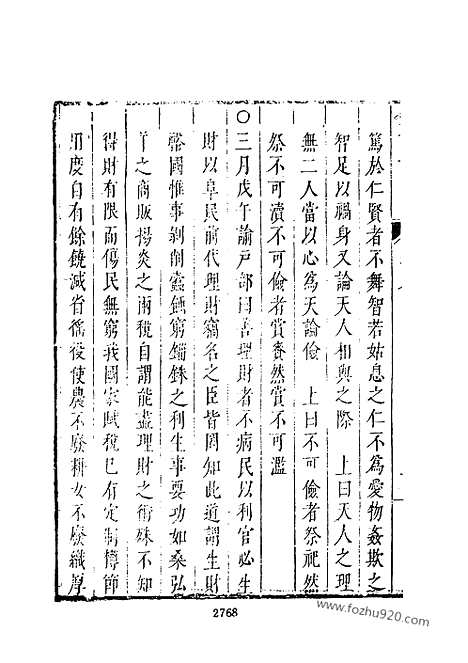 篤於仁賢者不舞智若姑息之仁不為愛物姦欺之
智足以禍身又論天人相與之際　上曰天人之理
無二人當以心為天論儉　上曰不可儉者祭祀然
祭不可瀆不可儉者賞賚然賞不可濫
〇三月戊午諭戶部曰善理財者不病民以利官必生
財以阜民前代理財竊名之臣皆罔知此道謂生財
裕國惟事剝削蠹蝕窮錙銖之利生事要功如桑弘
羊之商販楊炎之兩稅自謂能盡理財之術殊不知
得財有限而傷民無窮我國家賦稅已有定制撙節
用度自有餘饒減省徭役使農不廢耕女不廢織厚
2768
www.fozhu920.com